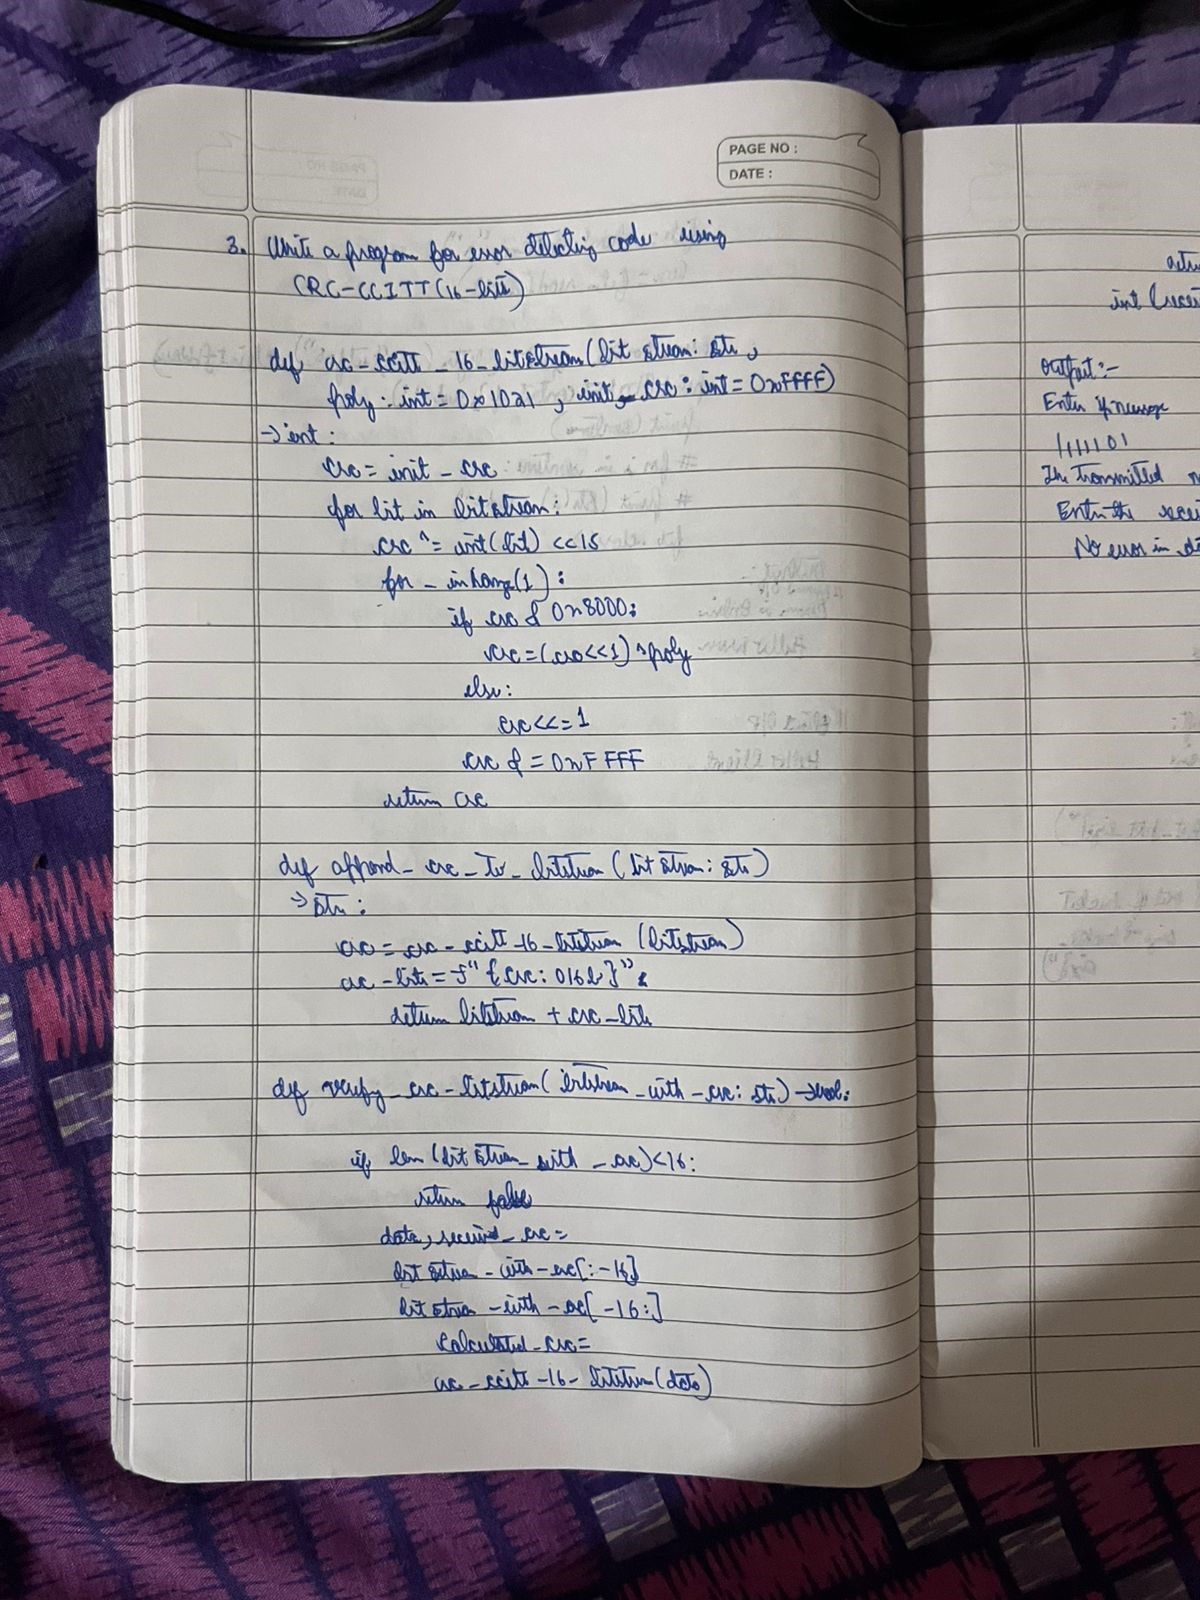 PAGE NO :
DATE :
3. Write a program for error detecting code using
CRC-CCITT (16-bits)
def crc-ccitt - 16 - bitstream (bit stream: str,
poly: int = 0x1021, init_crc: int = 0xFFFF)
-> int :
crc = init - crc
for bit in bitstream:
crc ^= int(bit) <<15
for - in range(1) :
if crc & 0x8000:
crc = (crc<<1) ^ poly
else:
crc <<= 1
crc & = 0xFFFF
return crc
def append - crc - to - bitstream (bit stream: str)
-> str :
crc = crc - ccitt -16-bitstream (bitstream)
crc - bits = f" {crc: 016b}"
return bitstream + crc - bits
def verify - crc - bitstream( bitstream - with - crc: str) -> bool:
if len (bit stream - with - crc) <16:
return false
data, received - crc =
bit stream - with - crc[:-16]
bit stream - with - crc[-16:]
Calculated - crc =
crc - ccitt -16 - bitstream (data)
int (recei
Output:-
Enter message
1111101
The transmitted
Enter the recei
No error in d